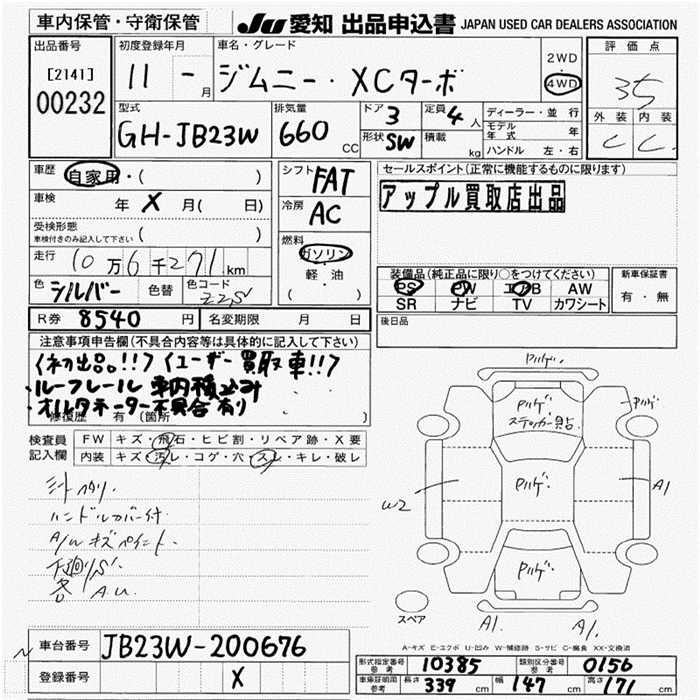 車内保管・守衛保管
JU 愛知 出品申込書 JAPAN USED CAR DEALERS ASSOCIATION
出品番号
[2141]
00232
初度登録年月
11 - 月
車名・グレード
ジムニー・XCターボ
2WD
4WD
評価点
35
外装 内装
C C
型式
GH-JB23W
排気量
660 CC
ドア 3
形状 SW
定員 4 人
積載 kg
ディーラー・並行
モデル年式 年
ハンドル 左・右
車歴 自家用・( )
車検 年 X 月( 日)
受検形態
車検付きのみ記入して下さい ( )
走行 10万6千271km
色 シルバー 色替 色コード Z2S
シフト FAT
冷房 AC
燃料
ガソリン
軽・油
( )
セールスポイント(正常に機能するものに限ります)
アップル買取店出品
装備品(純正品に限り○をつけてください)
PS PW エアB AW
SR ナビ TV カワシート
新車保証書
有・無
後日品
R券 8540 円 名変期限 月 日
注意事項申告欄(不具合内容等は具体的に記入して下さい)
<初出品。!!> <ユーザー買取車!!>
・ルーフレール 車内積込み
・オルタネーター不具合有り
修復歴 有 (箇所 )
検査員
記入欄
FW キズ・飛石・ヒビ割・リペア跡・X要
内装 キズ・汚レ・コゲ・穴・スレ・キレ・破レ
ハンドルカバー付
A/W キズ ペイント.
下廻りS
各 A.U.
Pハゲ.
Pハゲ.
ステッカー貼
Pハゲ
Pハゲ.
W2
A1
Pハゲ.
スペア
A1.
A1.
A-キズ E-エクボ U-凹み W-補修跡 S-サビ C-腐食 XX-交換済
車台番号 JB23W-200676
登録番号 X
形式指定番号 参考 10385 類別区分番号 参考 0156
車庫証明用 参考 長さ 339 cm 幅 147 cm 高さ 171 cm